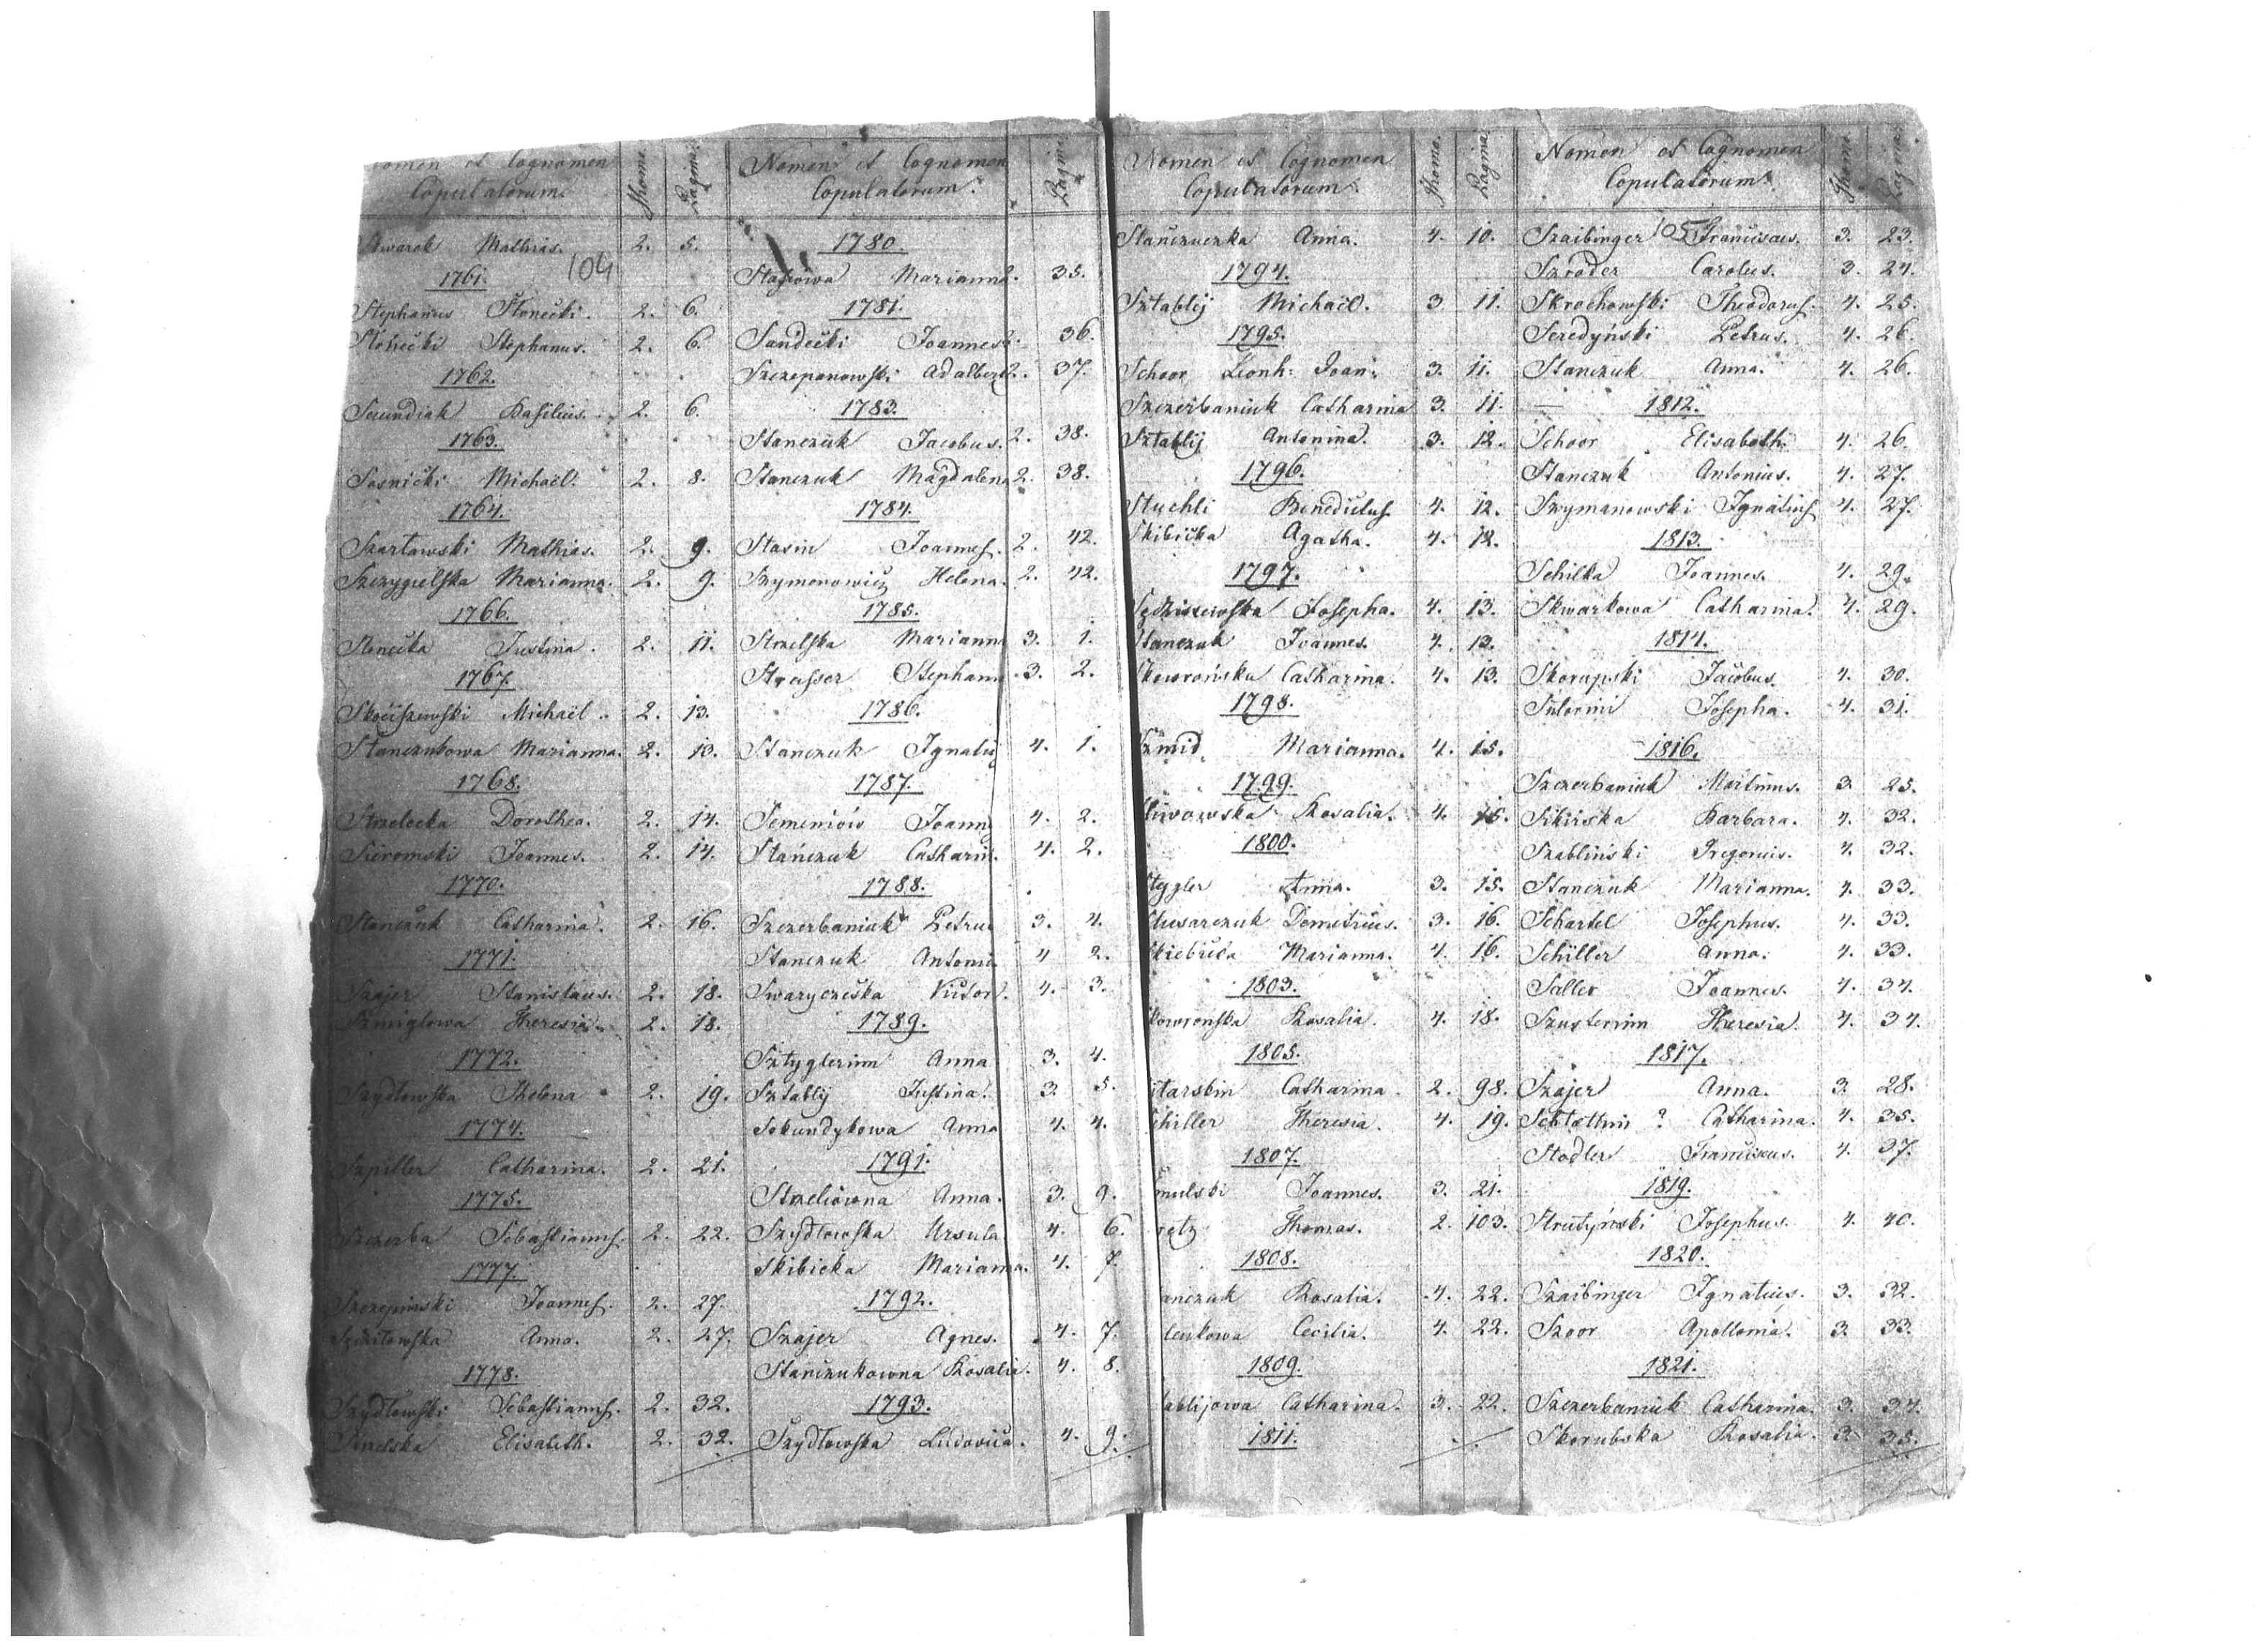 Nomen et Cognomen Thomo. Pagina.
Copulatorum.
Skwarek Mathias. 2. 5.
104
1761.
Stephanus Słonecki. 2. 6.
Słonecki Stephanus. 2. 6.
1762.
Basilius. 2. 6.
1763.
Sosnicki Michaël. 2. 8.
1764.
Szartawski Mathias. 2. 9.
Szczygielska Marianna. 2. 9.
1766.
Justina. 2. 11.
1767.
Michaël. 2. 13.
Stanczukowa Marianna. 2. 13.
1768.
Strzelecka Dorothea. 2. 14.
Sieromski Joannes. 2. 14.
1770.
Stanczuk Catharina. 2. 16.
1771.
Szajer Stanislaus. 2. 18.
Szmiglowa Theresia. 2. 18.
1772.
Szydłowska Helena 2. 19.
1774.
Szpiller Catharina. 2. 21.
1775.
Szczerba Sebastianus. 2. 22.
1777.
Szczepinski Joannes. 2. 27.
Anna. 2. 27.
1778.
Szydłowski Sebastianus. 2. 32.
Elisabeth. 2. 32.
Nomen et Cognomen Pagina
Copulatorum.
1780.
Marianna 2. 35.
1781.
Sandecki Joannes 2. 36.
Szczepanowski Adalbert 2. 37.
1783.
Stanczuk Jacobus. 2. 38.
Stanczuk Magdalena 2. 38.
1784.
Stasin Joannes. 2. 42.
Szymonowicz Helena. 2. 42.
1785.
Strzelska Marianna 3. 1.
Strasser Stephan 3. 2.
1786.
Stanczuk Ignati 4. 1.
1787.
Semeniow Joann 4. 2.
Stanczuk Catharin. 4. 2.
1788.
Szczerbaniuk Petrus 3. 4.
Stanczuk Antoni 4 2.
Swaryczeska Victor. 4. 3.
1789.
Sztyglerinn Anna 3. 4.
Sztablij Justina. 3. 5.
Sekundykowa Anna 4. 4.
1791.
Strzeliowna Anna. 3. 9.
Szydłowska Ursula 4. 6.
Skibicka Marianna. 4. 7.
1792.
Szajer Agnes. 4. 7.
Stanczukowna Rosalia. 4. 8.
1793.
Szydłowska Ludovica. 4. 9.
Nomen et Cognomen Thomo. Pagina.
Copulatorum.
Stanczuczka Anna. 4. 10.
1794.
Sztablij Michaël. 3 11.
1795.
Schoor Leonh: Joan: 3. 11.
Szczerbaniuk Catharina 3. 11.
Sztablij Antonina. 3. 12.
1796.
Stuchli Benedictus 4. 12.
Skibicka Agatha. 4. 12.
1797.
Josepha. 4. 13.
Stanczuk Joannes. 4. 13.
Skowrońska Catharina. 4. 13.
1798.
Szmid Marianna. 4. 15.
1799.
Rosalia. 4. 15.
1800.
Stygler Anna. 3. 15.
Slusarczuk Demetrius. 3. 16.
Skiebicka Marianna. 4. 16.
1803.
kowronska Rosalia. 4. 18.
1805.
Catharina. 2. 98.
chiller Theresia. 4. 19.
1807.
mulski Joannes. 3. 21.
Thomas. 2. 103.
1808.
anczuk Rosalia. 4. 22.
Cecilia. 4. 22.
1809.
tablijowa Catharina. 3. 22.
1811.
Nomen et Cognomen Thomo. Pagina.
Copulatorum.
Szaibinger 105 Franciscus. 3. 23.
Szroder Carolus. 3. 24.
Skrochowski Theodorus. 4. 25.
Seredyński Petrus. 4. 26.
Stanczuk Anna. 4. 26.
— 1812.
Schoor Elisabeth. 4. 26.
Stanczuk Antonius. 4. 27.
Szymanowski Ignatius 4. 27.
1813.
Schilka Joannes. 4. 29.
Skwarkowa Catharina. 4. 29.
1814.
Skorupski Jacobus 4. 30.
Josepha. 4. 31.
1816.
Szczerbaniuk Martinus. 3. 25.
Sikirska Barbara. 4. 32.
Szabliński Gregorius. 4. 32.
Stanczuk Marianna. 4. 33.
Schartel Josephus. 4. 33.
Schiller Anna. 4. 33.
Saller Joannes. 4. 34.
Szusterinn Theresia. 4. 34.
1817.
Szajer Anna. 3. 28.
? Catharina. 4. 35.
Stadler Franciscus. 4. 37.
1819.
Strutyński Josephus. 4. 40.
1820.
Szaibinger Ignatius. 3. 32.
Szoor Apollonia. 3. 33.
1821.
Szczerbaniuk Catharina. 3. 34.
Skorubska Rosalia. 3. 35.